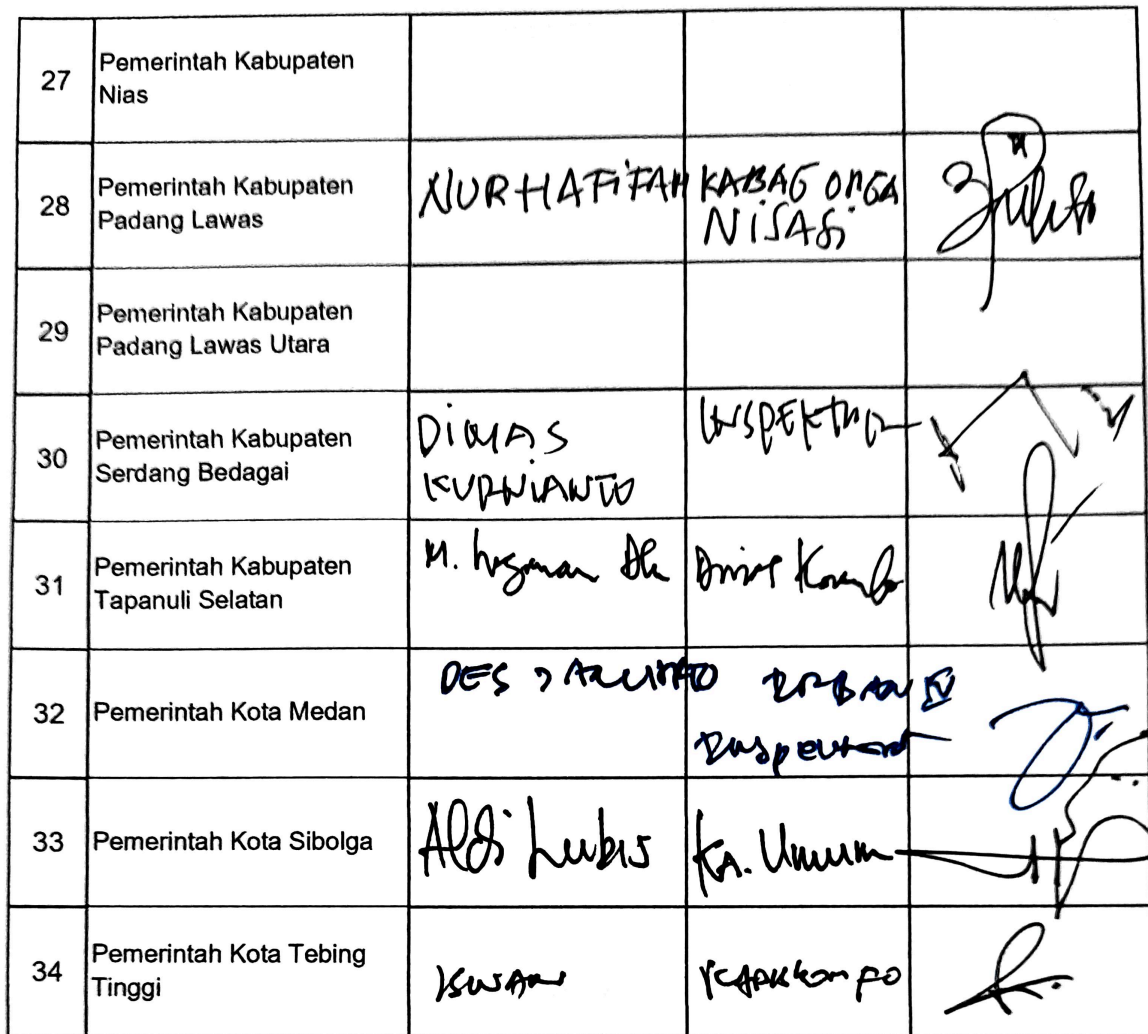 27
Pemerintah Kabupaten
Nias
28
Pemerintah Kabupaten
Padang Lawas
NURHAFIFAH
KABAG ORGA
NISASi
29
Pemerintah Kabupaten
Padang Lawas Utara
30
Pemerintah Kabupaten
Serdang Bedagai
DiMAS
KURNIANTO
INSPEKTUR
31
Pemerintah Kabupaten
Tapanuli Selatan
M.
Dinas
32
Pemerintah Kota Medan
IRBAN IV
Inspektorat
33
Pemerintah Kota Sibolga
Aldi Lubis
Ka. Umum
34
Pemerintah Kota Tebing
Tinggi